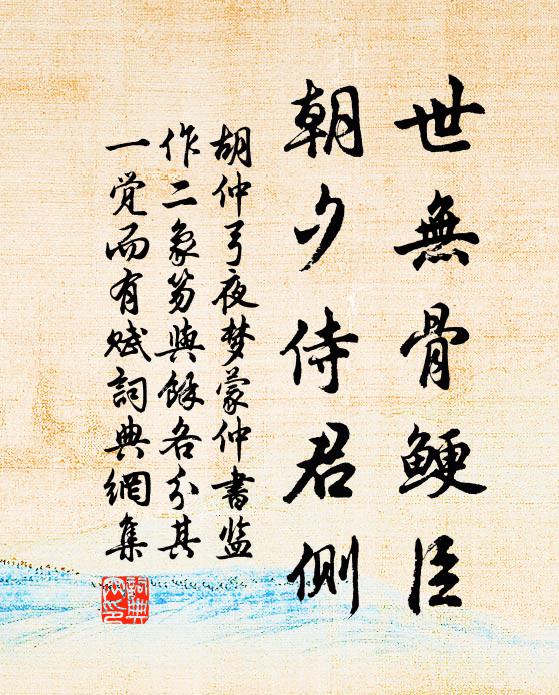 世無骨鯁臣
朝夕侍君側
胡仲弓夜梦蒙仲書监
作二象笏與餘各分其
一觉而有赋詞典網集